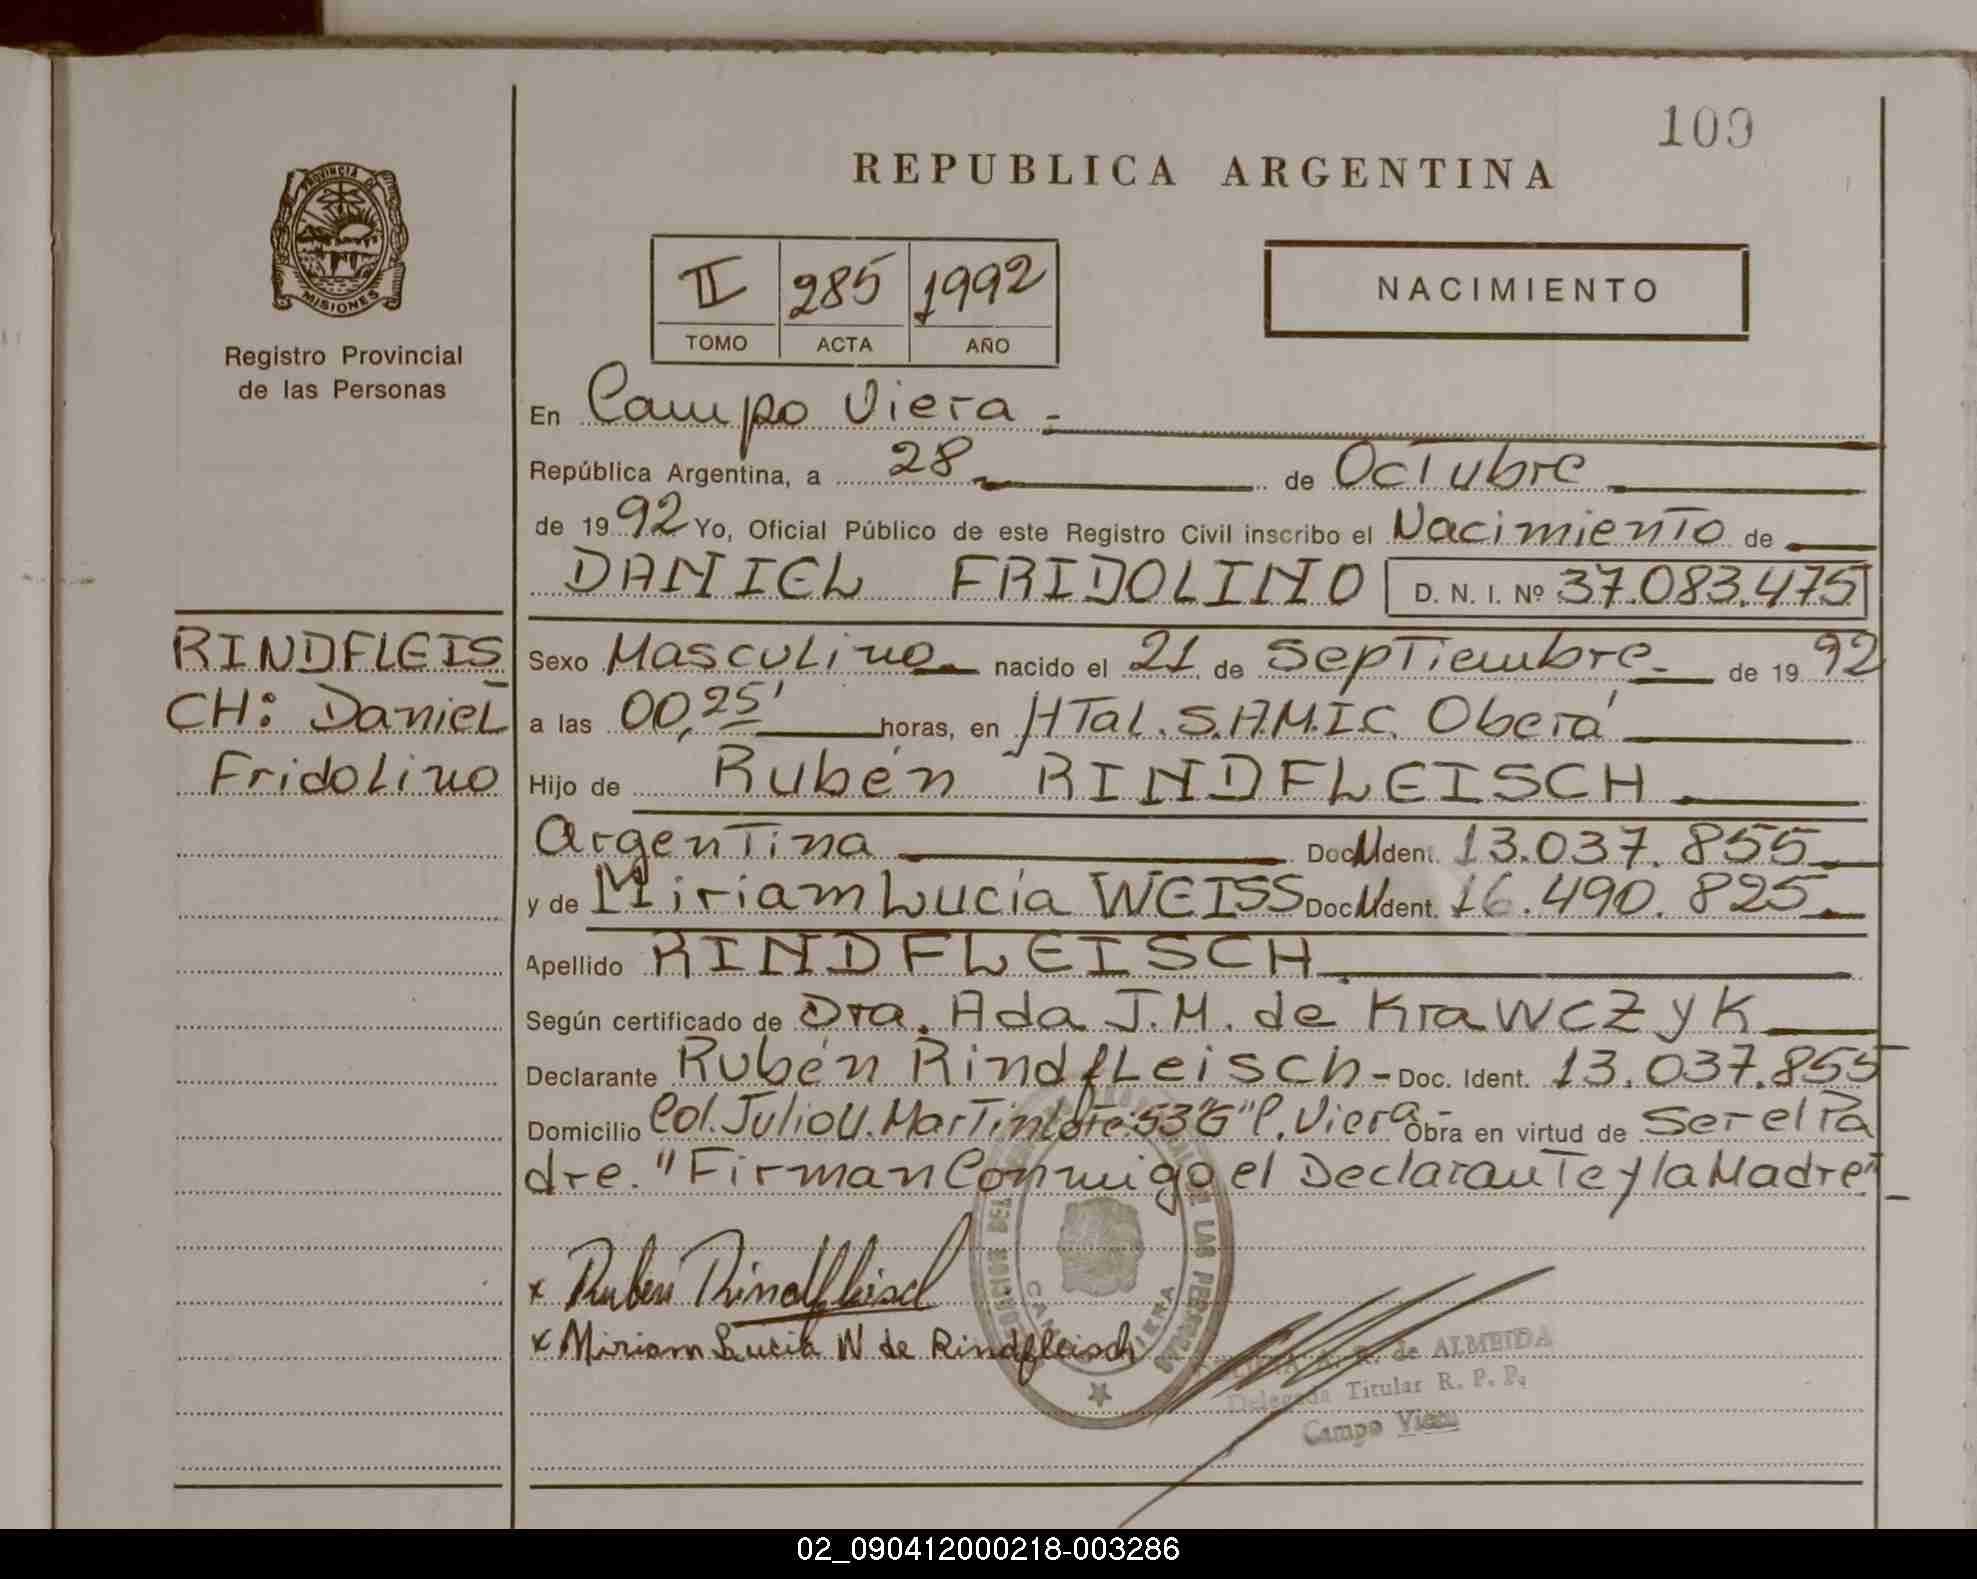 100
REPUBLICA ARGENTINA
PROVINCIA DE
MISIONES
Registro Provincial
de las Personas
II 285 1992
TOMO ACTA AÑO
NACIMIENTO
En Campo Viera.-
República Argentina, a 28 de Octubre
de 1992 Yo, Oficial Público de este Registro Civil inscribo el Nacimiento de
DANIEL FRIDOLINO D. N. I. Nº 37.083.475
RINDFLEIS
CH: Daniel
Fridolino
Sexo Masculino.- nacido el 21 de Septiembre.- de 1992
a las 00,25' horas, en HTal. S.A.M.I.C. Oberá
Hijo de Rubén RINDFLEISCH
Argentina Doc. Ident. 13.037.855.
y de Miriam Lucía WEISS Doc. Ident. 16.490.825.
Apellido RINDFLEISCH.
Según certificado de Dra. Ada J.M. de Krawczyk
Declarante Rubén Rindfleisch - Doc. Ident. 13.037.855
Domicilio Col. Julio U. Martin Lote: 53 "G" C. Viera.- Obra en virtud de ser el Pa
dre. "Firman Conmigo el Declarante y la Madre"-
x Ruben Rindfleisch
x Miriam Lucia W de Rindfleisch
A. R. de ALMEIDA
Delegada Titular R. P. P.
Campo Viera
02_090412000218-003286